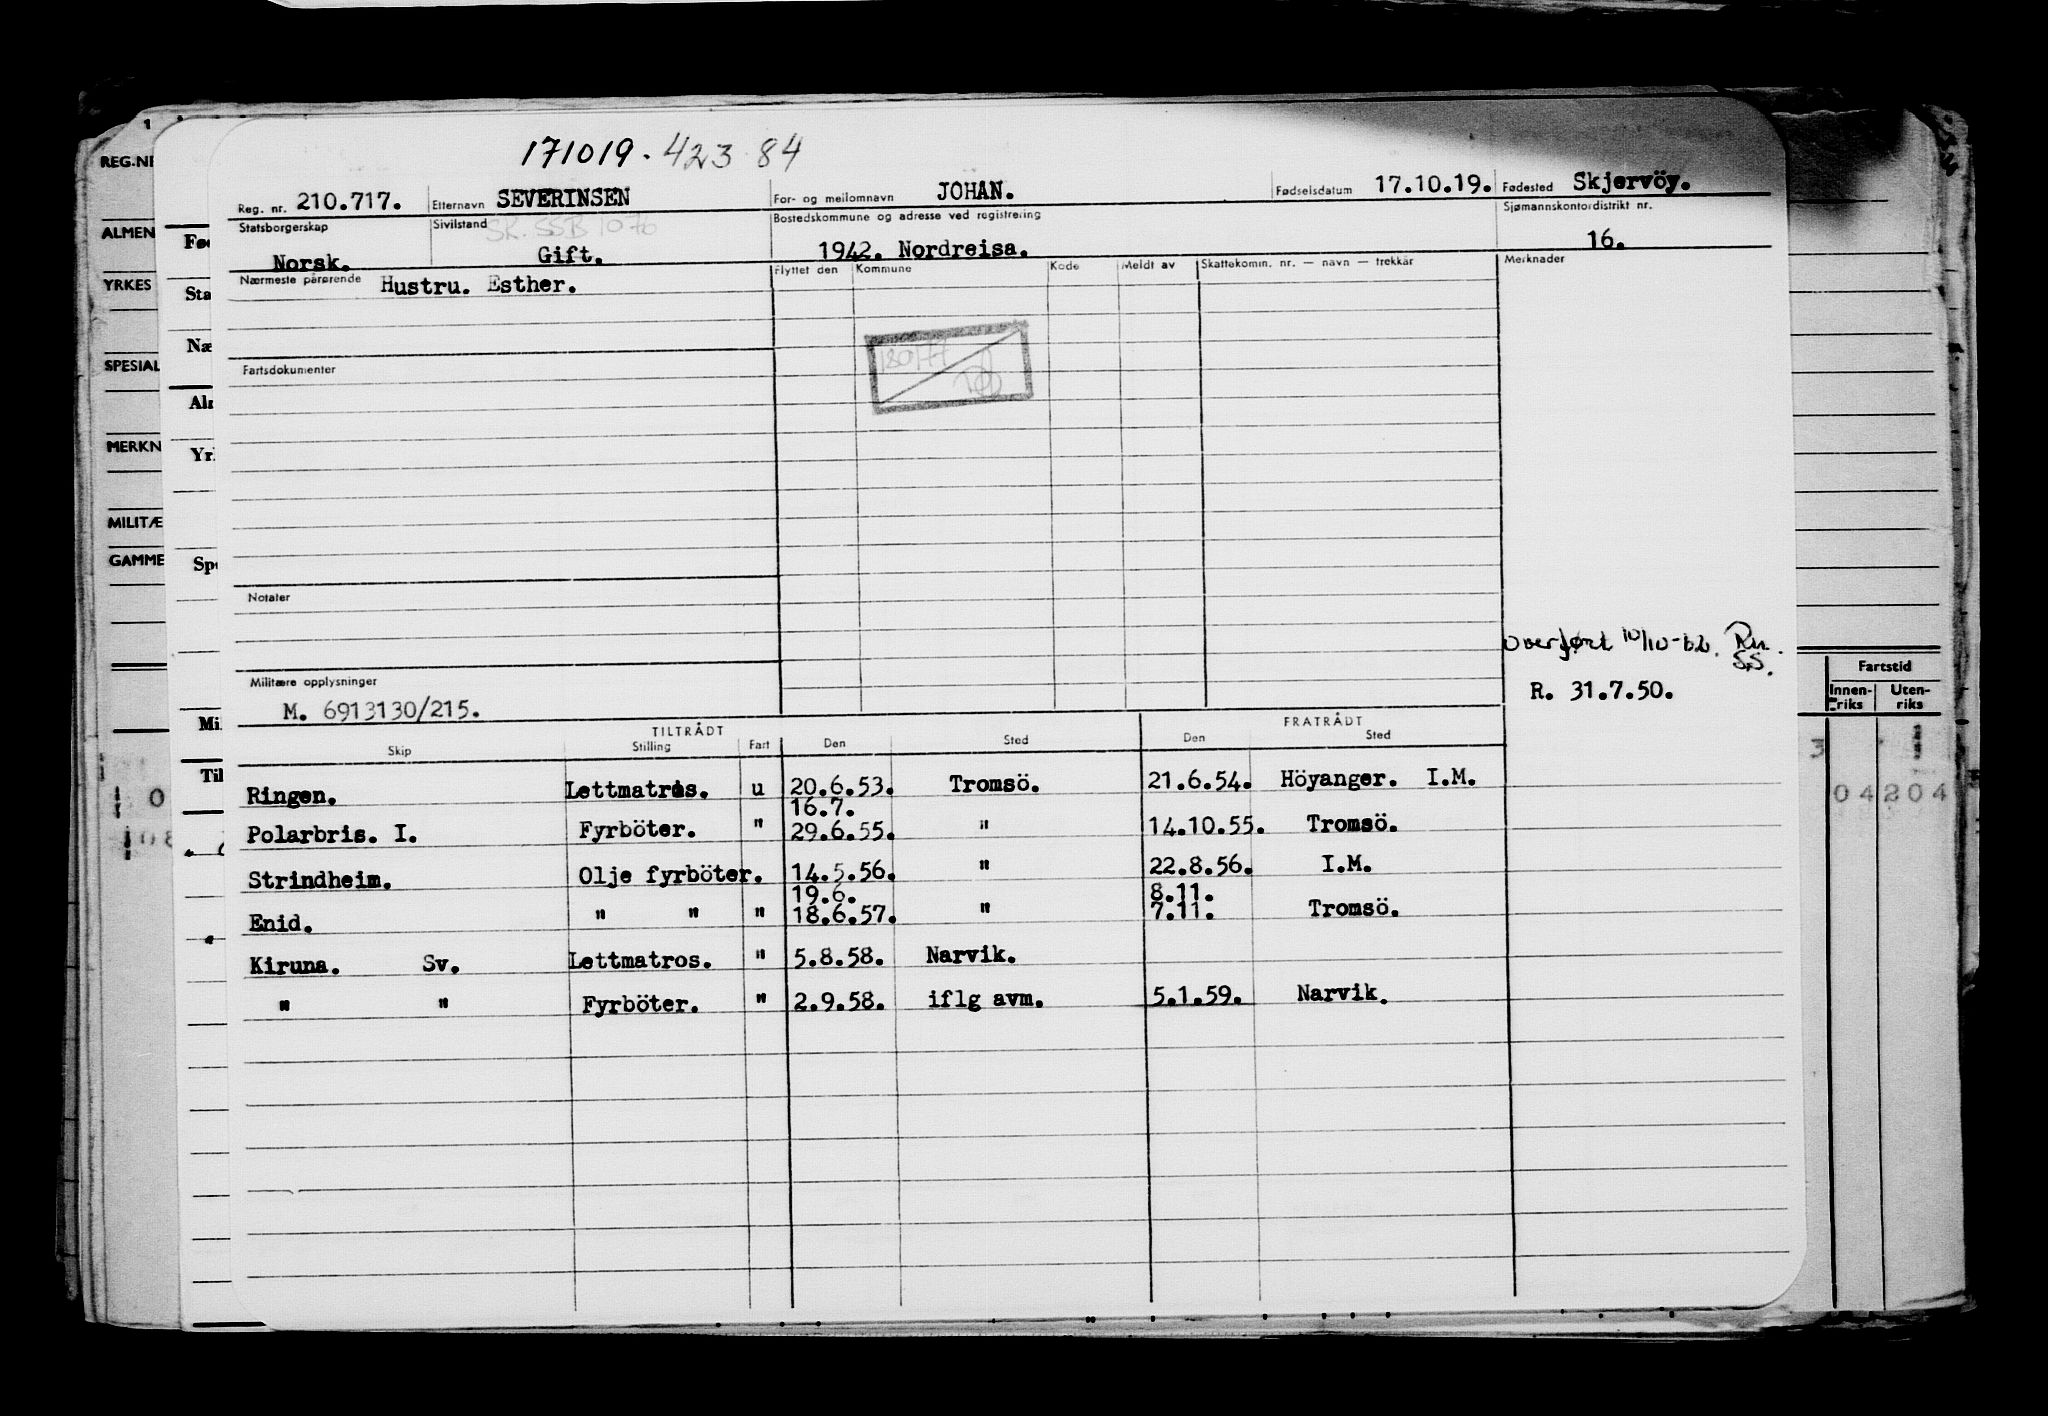 171019. 42384
Reg. nr. 210.717. Etternavn SEVERINSEN For- og mellomnavn JOHAN. Fødselsdatum 17.10.19. Fødested Skjervöy.
Statsborgerskap Norsk. Sivilstand Gift. Bostedskommune og adresse ved registrering 1942. Nordreisa. Sjømannskontordistrikt nr. 16.
Nærmeste pårørende Hustru. Esther. Flyttet den Kommune Kode Meldt av Skattekomm. nr. — navn — trekkår Merknader
Fartsdokumenter
Notater
overført 10/10-62.
R. 31.7.50.
Militære opplysninger
M. 6913130/215.
TILTRÅDT FRATRÅDT
Skip Stilling Fart Den Sted Den Sted
Ringen. Lettmatros. u 20.6.53. Tromsö. 21.6.54. Höyanger. I.M.
16.7.
Polarbris. I. Fyrböter. " 29.6.55. " 14.10.55. Tromsö.
Strindheim. Olje fyrböter. 14.5.56. " 22.8.56. I.M.
19.6. 8.11.
Enid. " " " 18.6.57. " 7.11. Tromsö.
Kiruna. Sv. Lettmatros. " 5.8.58. Narvik.
" " Fyrböter. " 2.9.58. iflg avm. 5.1.59. Narvik.
REG.NR
ALMEN
YRKES
SPESIAL
MERKN
MILITÆ
GAMME
Fø
Sta
Næ
Aln
Yrl
Spe
Mi
Til
Fartstid
Innen-riks Uten-riks
04204